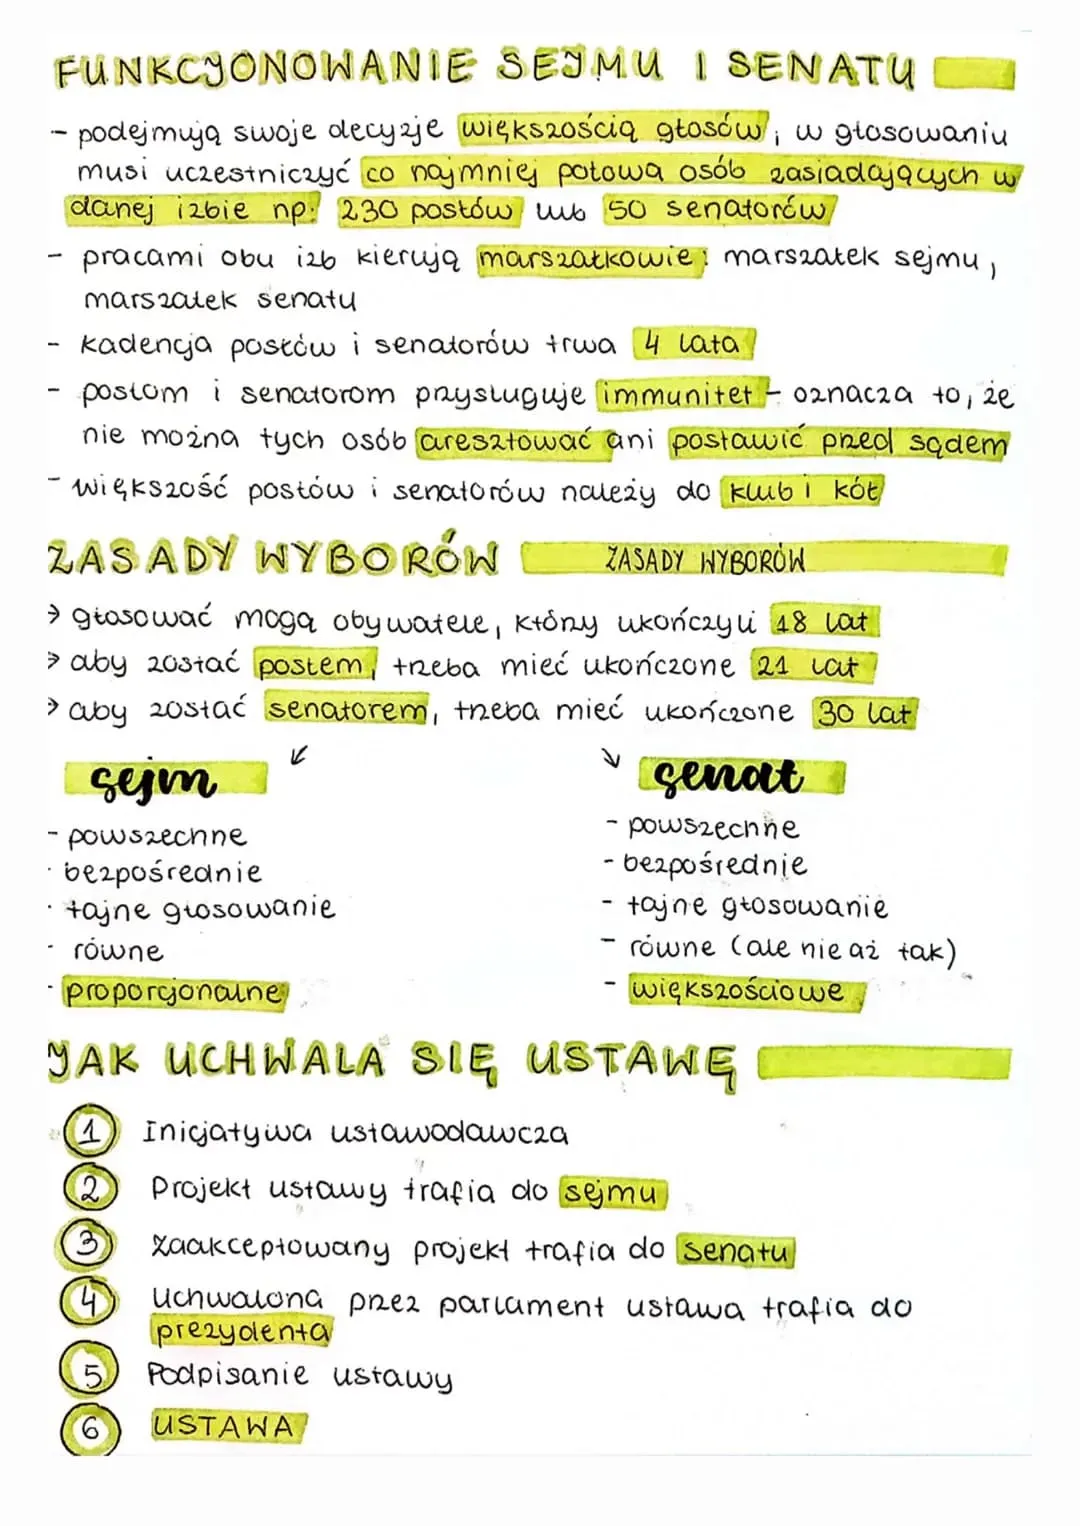 FUNKCJONOWANIE SEJMU I SENATU
- podejmują swoje decyzje większością głosów, w głosowaniu
musi uczestniczyć co najmniej połowa osób zasiadających w
danej izbie np. 230 posłów lub 50 senatorów
- pracami obu izb kierują marszałkowie: marszałek sejmu,
marszałek senatu
- kadencja posłów i senatorów trwa 4 lata
- posłom i senatorom przysługuje immunitet - oznacza to, że
nie można tych osób aresztować ani postawić przed sądem
- większość posłów i senatorów należy do klub i kół
ZASADY WYBORÓW ZASADY WYBORÓW
→ głosować mogą obywatele, którzy ukończyli 18 lat
→ aby zostać posłem, trzeba mieć ukończone 21 lat
→ aby zostać senatorem, trzeba mieć ukończone 30 lat
sejm
- powszechne
- bezpośrednie
- tajne głosowanie
- równe
- proporcjonalne
senat
- powszechne
- bezpośrednie
- tajne głosowanie
- równe (ale nie aż tak)
- większościowe
JAK UCHWALA SIĘ USTAWĘ
1 Inicjatywa ustawodawcza
2 Projekt ustawy trafia do sejmu
3 Zaakceptowany projekt trafia do senatu
4 Uchwalona przez parlament ustawa trafia do
prezydenta
5 Podpisanie ustawy
6 USTAWA